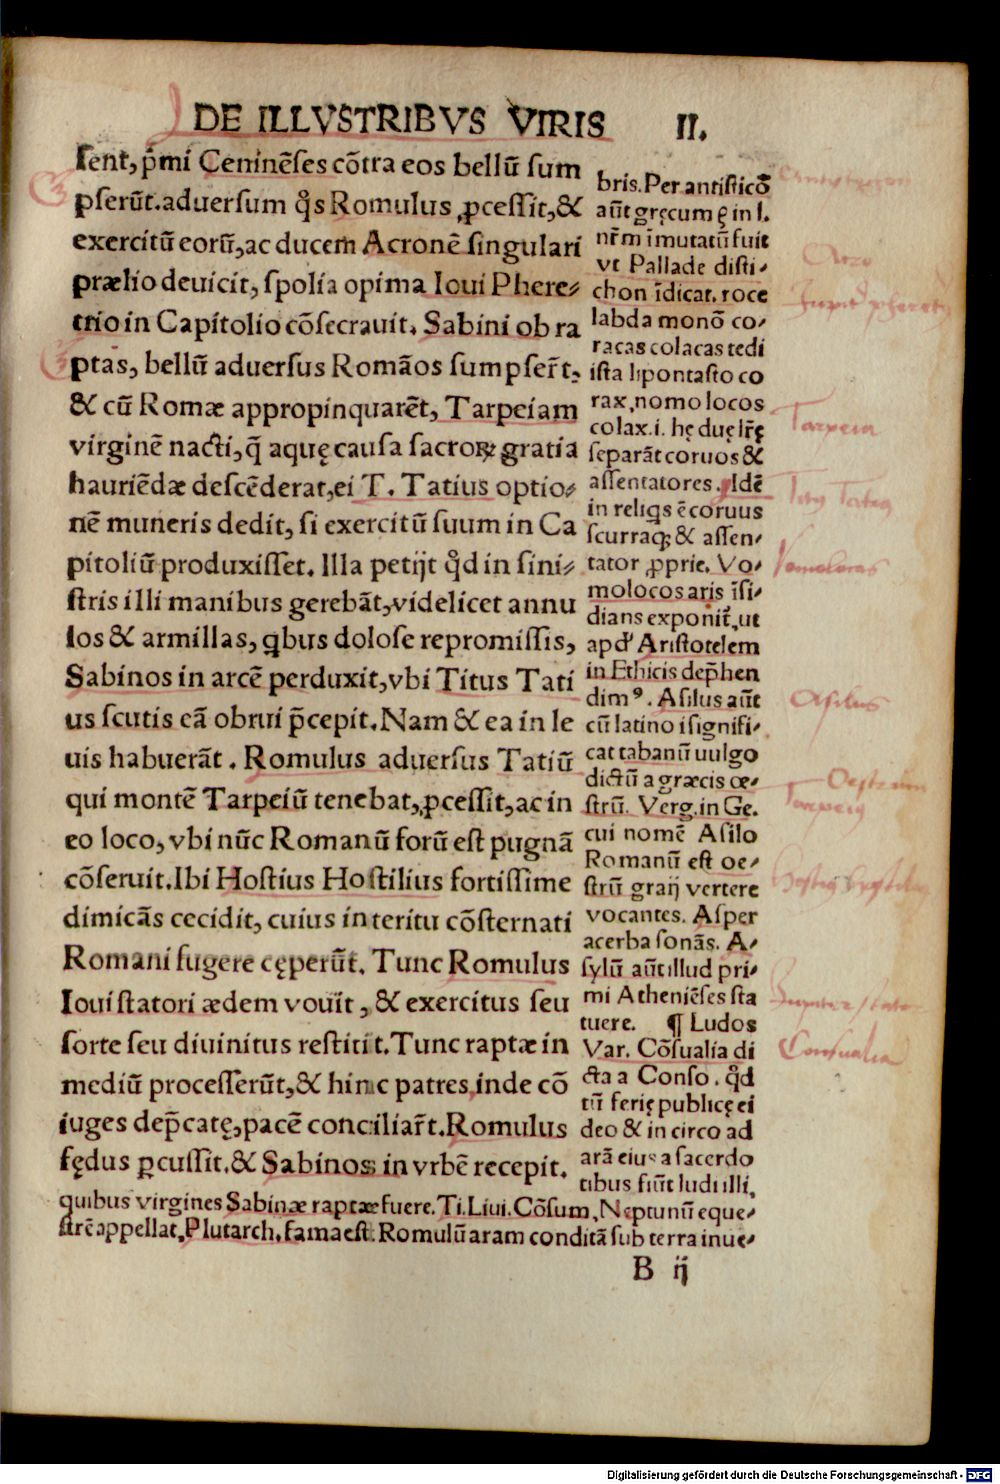 DE ILLVSTRIBVS VIRIS II.
ſent, p̃mi Ceninẽſes cõtra eos bellũ ſum
pſerũt. aduerſum q̃s Romulus ꝓceſſit, &
exercitũ eorũ, ac ducem Acronẽ ſingulari
prælio deuicit, ſpolia opima Ioui Phere⸗
trio in Capitolio cõſecrauit. Sabini ob ra
ptas, bellũ aduerſus Romãos ſumpſer̃t.
& cũ Romæ appropinquarẽt, Tarpeiam
virginẽ nacti, q̃ aquę cauſa ſacroꝝ gratia
hauriẽdæ deſcẽderat, ei T. Tatius optio⸗
nẽ muneris dedit, ſi exercitũ ſuum in Ca
pitoliũ produxiſſet. Illa petijt qđ in ſini⸗
ſtris illi manibus gerebãt, videlicet annu
los & armillas, qbus doloſe repromiſſis,
Sabinos in arcẽ perduxit, vbi Titus Tati
us ſcutis eã obrui p̃cepit. Nam & ea in le
uis habuerãt. Romulus aduerſus Tatiũ
qui montẽ Tarpeiũ tenebat, ꝓceſſit, ac in
eo loco, vbi nũc Romanũ forũ eſt pugnã
cõſeruit. Ibi Hoſtius Hoſtilius fortiſſime
dimicãs cecidit, cuius interitu cõſternati
Romani fugere cęperũt. Tunc Romulus
Ioui ſtatori ædem vouit, & exercitus ſeu
forte ſeu diuinitus reſtitit. Tunc raptæ in
mediũ proceſſerũt, & hinc patres inde cõ
iuges dep̃catę, pacẽ conciliar̃t. Romulus
fędus ꝑcuſſit. & Sabinos in vrbẽ recepit.
bris. Per antiſticõ
aũt gręcum ę in l.
nr̃m ĩmutatũ fuit
vt Pallade diſti⸗
chon ĩdicat. roce
labda monõ co⸗
racas colacas tedi
iſta lipontaſto co
rax, nomo locos
colax. i. hę duę lr̃ę
ſeparãt coruos &
aſſentatores. Idẽ
in reliqs ẽ coruus
ſcurraq; & aſſen⸗
tator ꝓprie. Vo⸗
molocos aris ĩſi⸗
dians exponit̃, ut
apđ Ariſtotelem
in Ethicis dep̃hen
dimꝰ. Aſilus aũt
cũ latino iſignifi⸗
cat tabanũ uulgo
dictũ a græcis œ⸗
ſtrũ. Verg. in Ge.
cui nomẽ Aſilo
Romanũ eſt oe⸗
ſtrũ graij vertere
vocantes. Aſper
acerba ſonãs. A⸗
ſylũ aũt illud pri⸗
mi Atheniẽſes ſta
tuere. ¶ Ludos
Var. Cõſualia di
cta a Conſo. qđ
tũ ferię publicę ei
deo & in circo ad
arã eius a ſacerdo
tibus fiũt ludi illi,
quibus virgines Sabinæ raptæ fuere. Ti. Liui. Cõſum, Neptunũ eque⸗
ſtrẽ appellat. Plutarch. fama eſt. Romulũ aram conditã ſub terra inue⸗
B ij
Tarpeia
Aſilus
Conſualia
Digitalisierung gefördert durch die Deutsche Forschungsgemeinschaft - DFG